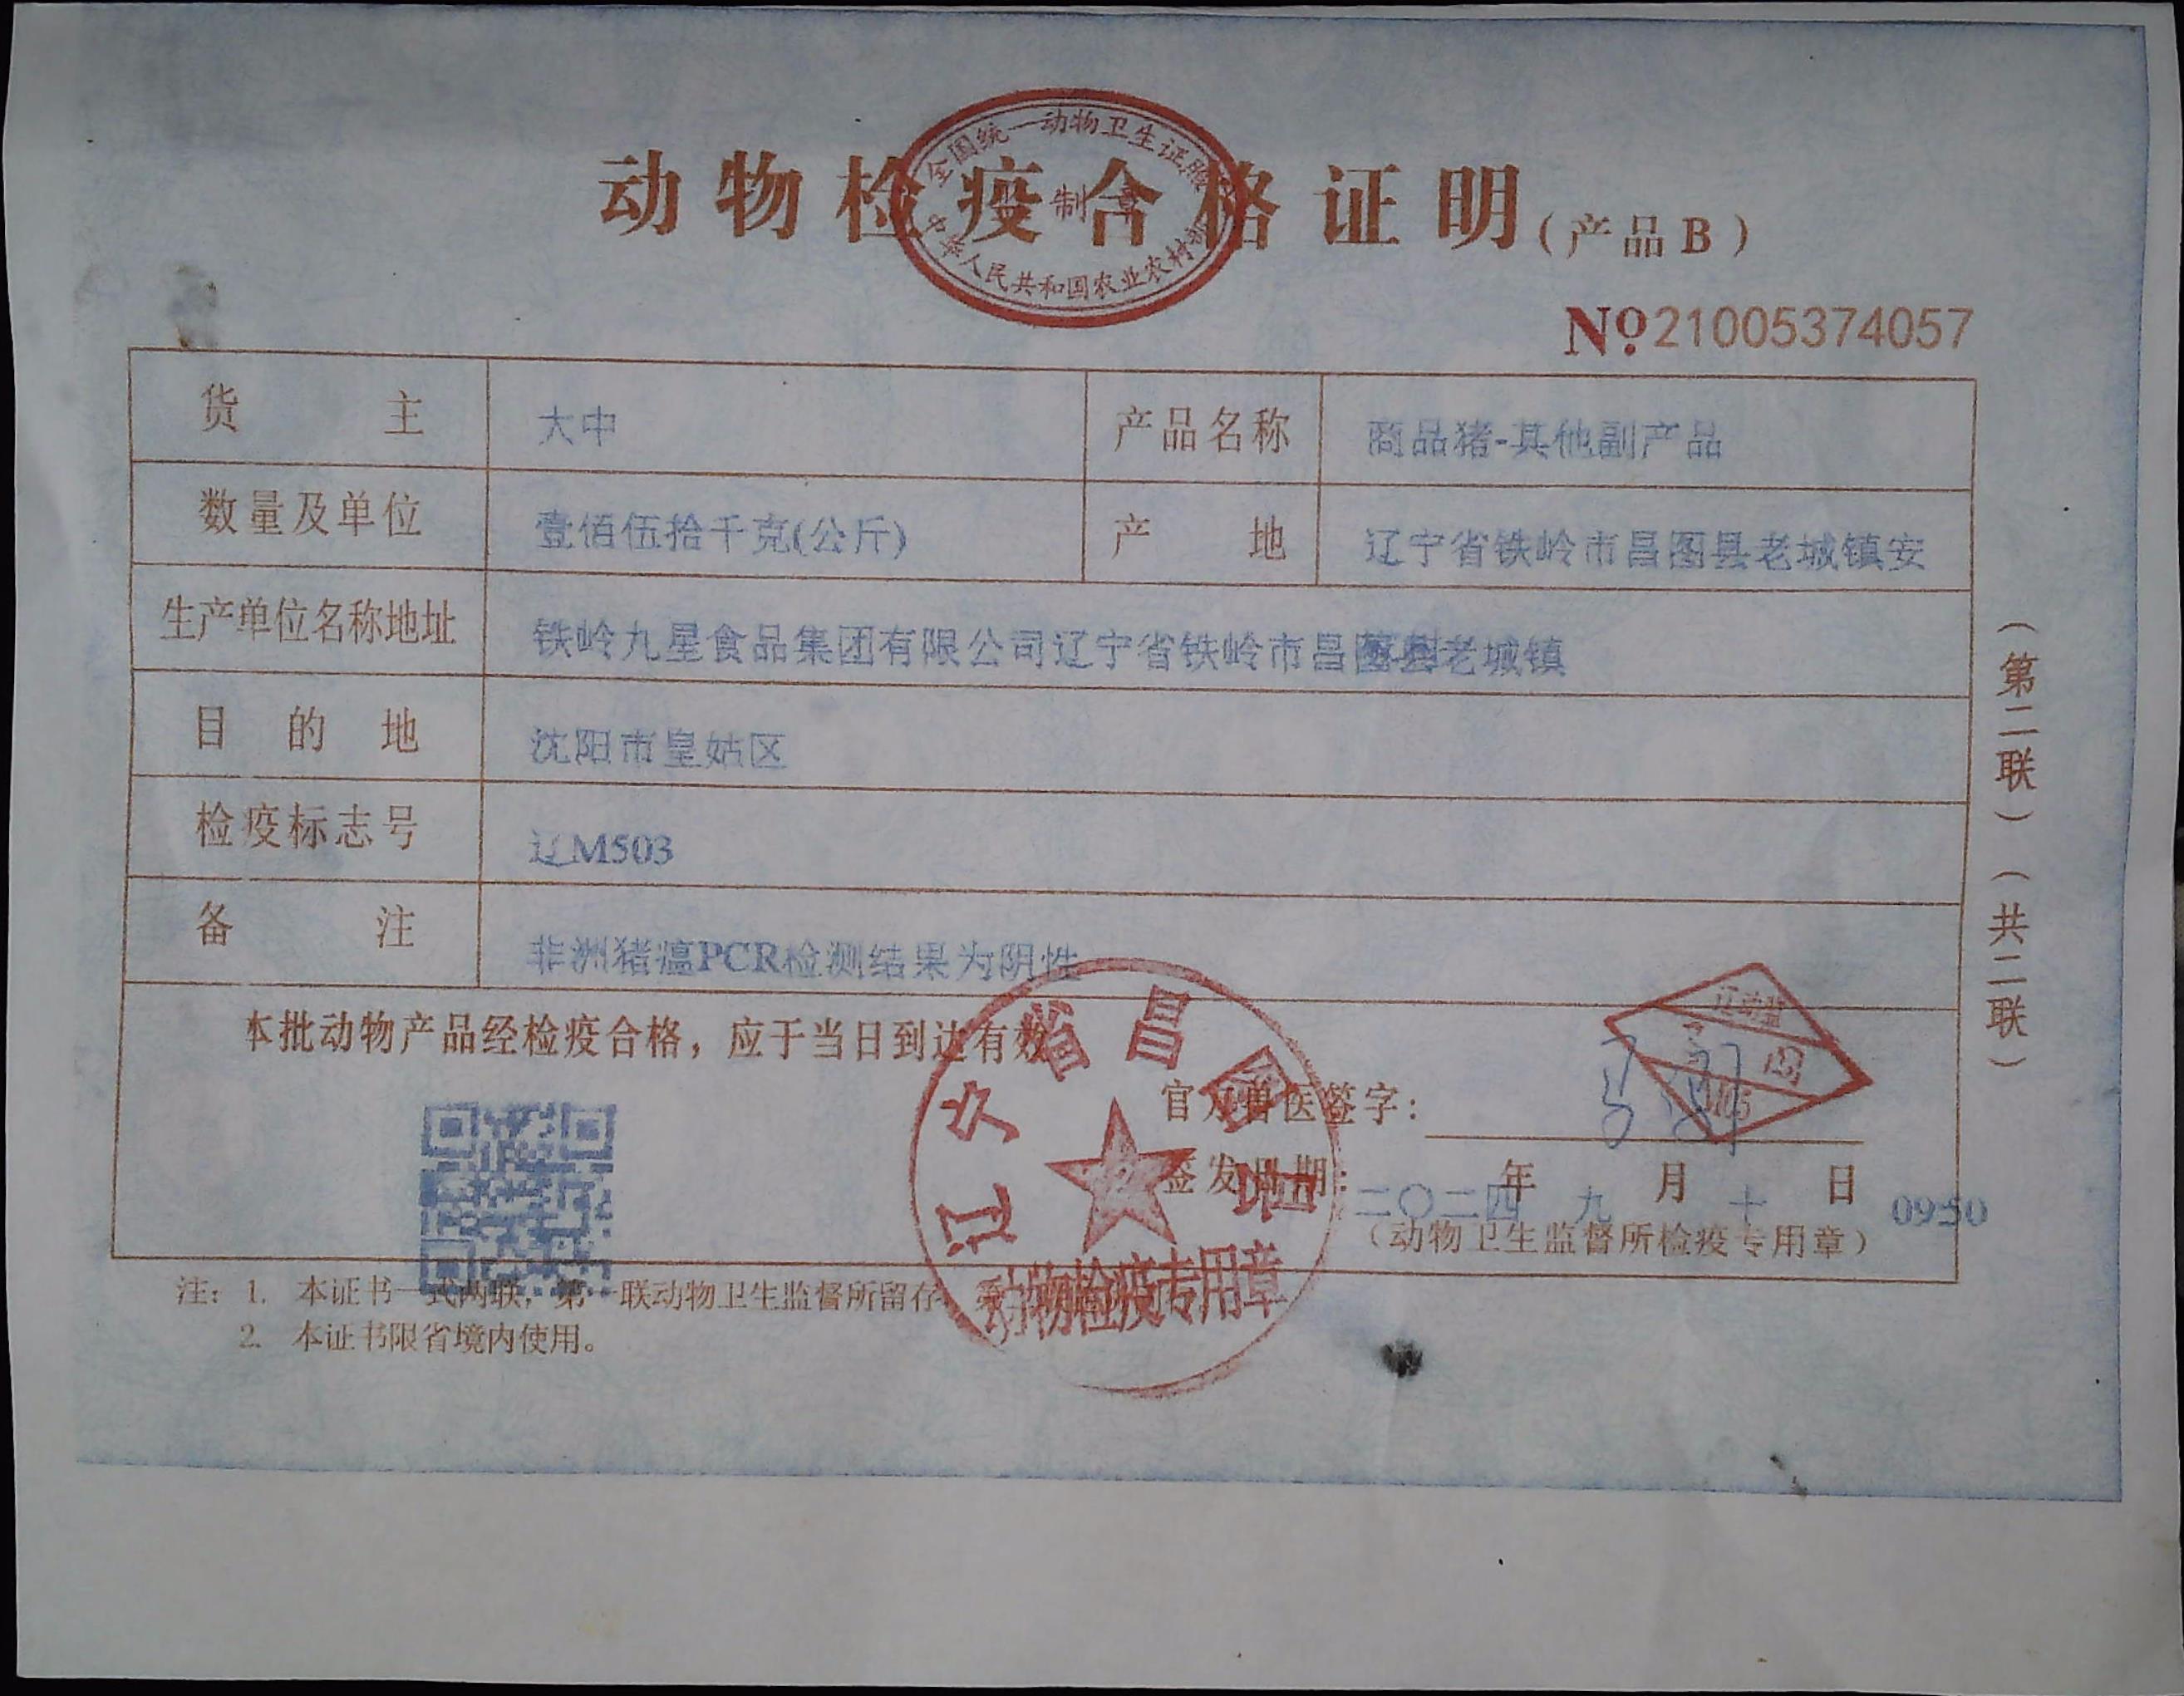 动物检疫合格证明(产品B)
全国统一动物卫生证
制章
中华人民共和国农业农村部
№21005374057
货主 大中 产品名称 商品猪-其他副产品
数量及单位 壹佰伍拾千克(公斤) 产地 辽宁省铁岭市昌图县老城镇安
生产单位名称地址 铁岭九星食品集团有限公司辽宁省铁岭市昌图县老城镇
目的地 沈阳市皇姑区
检疫标志号 辽M503
备注 非洲猪瘟PCR检测结果为阴性
本批动物产品经检疫合格，应于当日到达有效
辽宁省昌图县
动物检疫专用章
辽动监
官方兽医签字：
签发日期：二〇二四年九月十日 0950
（动物卫生监督所检疫专用章）
注：1. 本证书一式两联，第一联动物卫生监督所留存，
2. 本证书限省境内使用。
（第二联）（共二联）